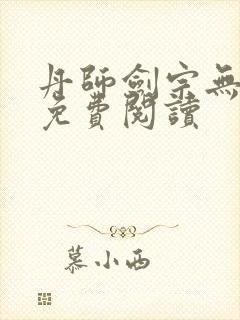 丹師劍宗無
免費閱讀
慕小西